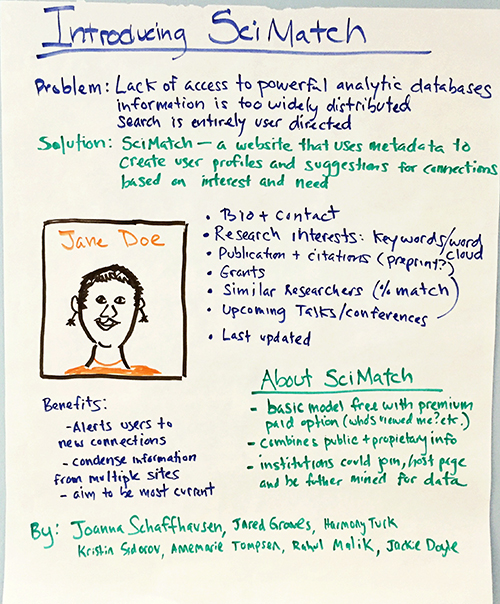 Introducing SciMatch
Problem: Lack of access to powerful analytic databases
information is too widely distributed
search is entirely user directed
Solution: SciMatch — a website that uses metadata to
create user profiles and suggestions for connections
based on interest and need
Jane Doe
• Bio + Contact
• Research interests: Keywords/word
cloud
• Publication + citations (preprint?)
• Grants
• Similar Researchers (% match)
• Upcoming Talks/conferences
• Last updated
Benefits:
- Alerts users to
new connections
- condense information
from multiple sites
- aim to be most current
About SciMatch
- basic model free with premium
paid option (who's viewed me? etc.)
- combines public + propietary info
- institutions could join, host page
and be futher mined for data
By: Joanna Schaffhausen, Jared Groves, Harmony Turk
Kristin Sidorov, Annemarie Tompsen, Rahul Malik, Jackie Doyle